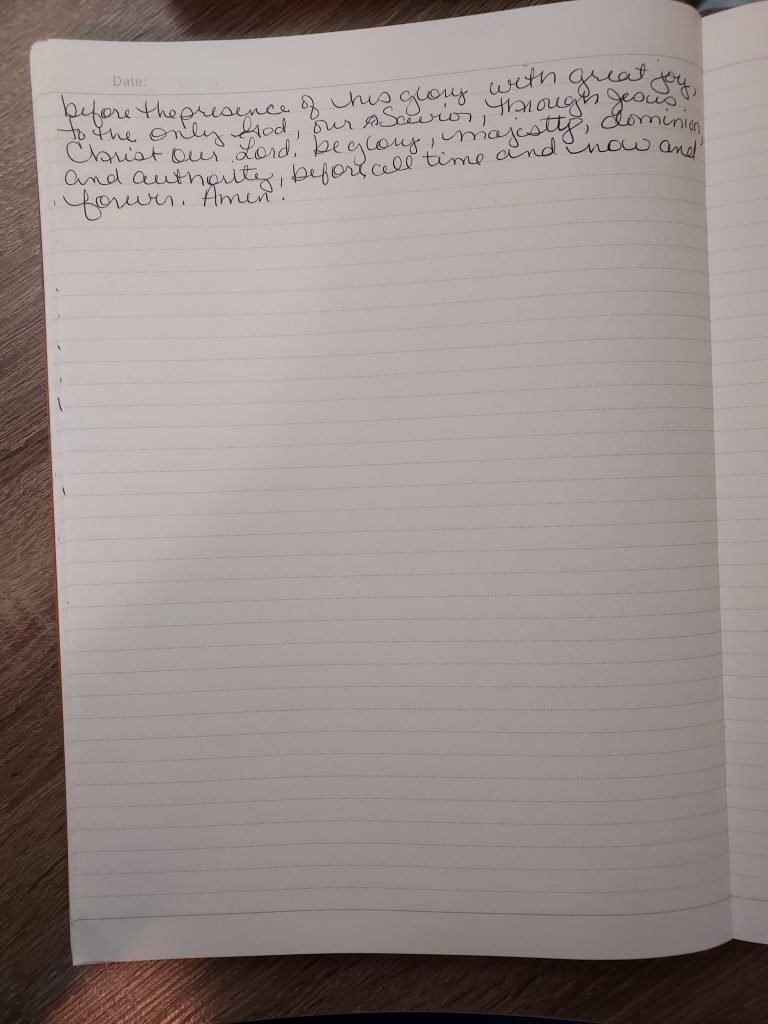 Date:
before the presence of his glory with great joy,
to the only God, our Savior, through Jesus
Christ our Lord, be glory, majesty, dominion,
and authority, before all time and now and
forever. Amen.